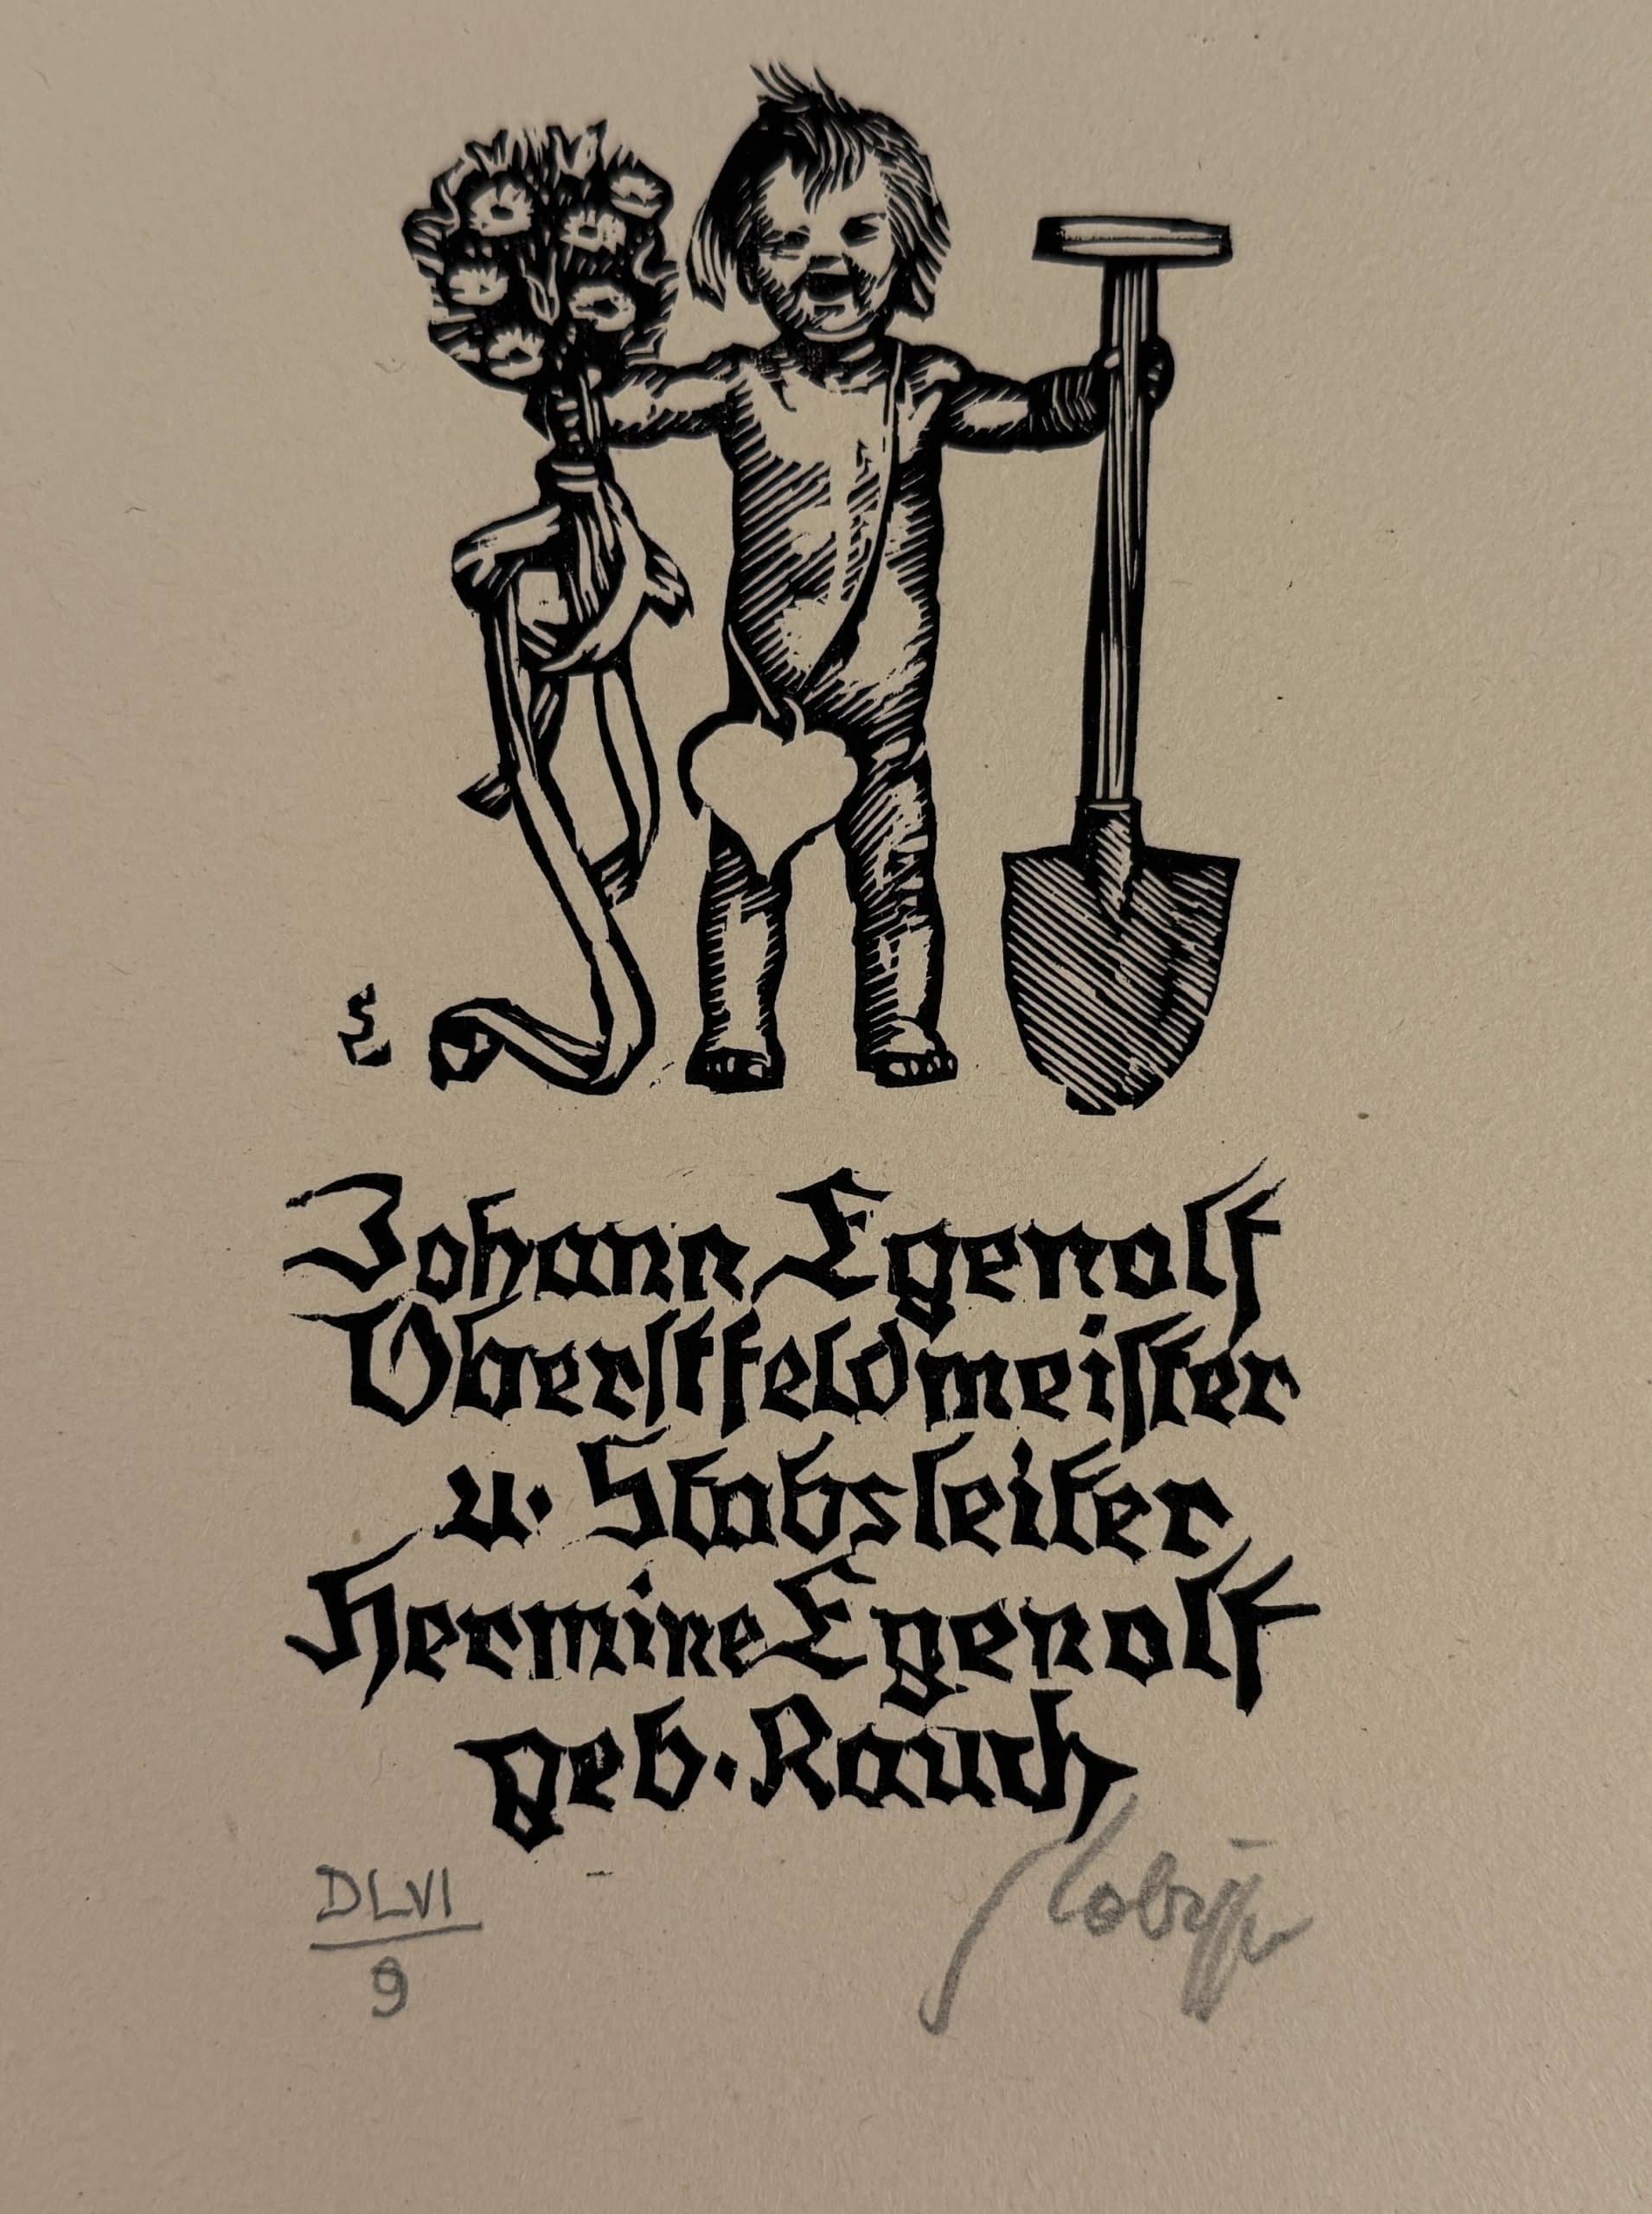 S
L
Johann Egenolf
Oberstfeldmeister
u. Stabsleiter
Hermine Egenolf
geb. Rauch
DLVI
9